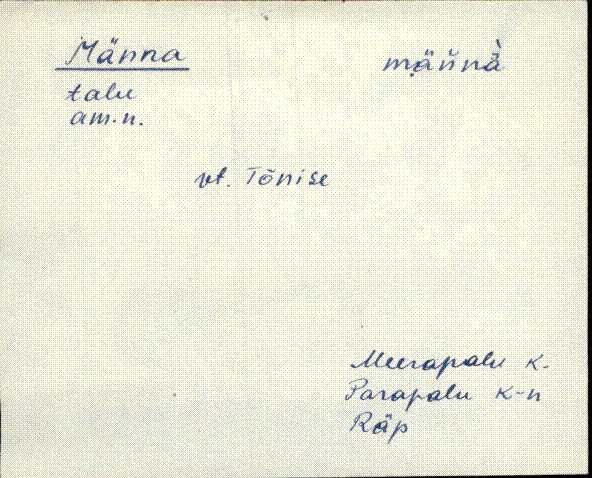 Männa
mäǹnà
talu
am.n.
vt. Tõnise
Meerapalu k.
Parapalu k-n
Räp